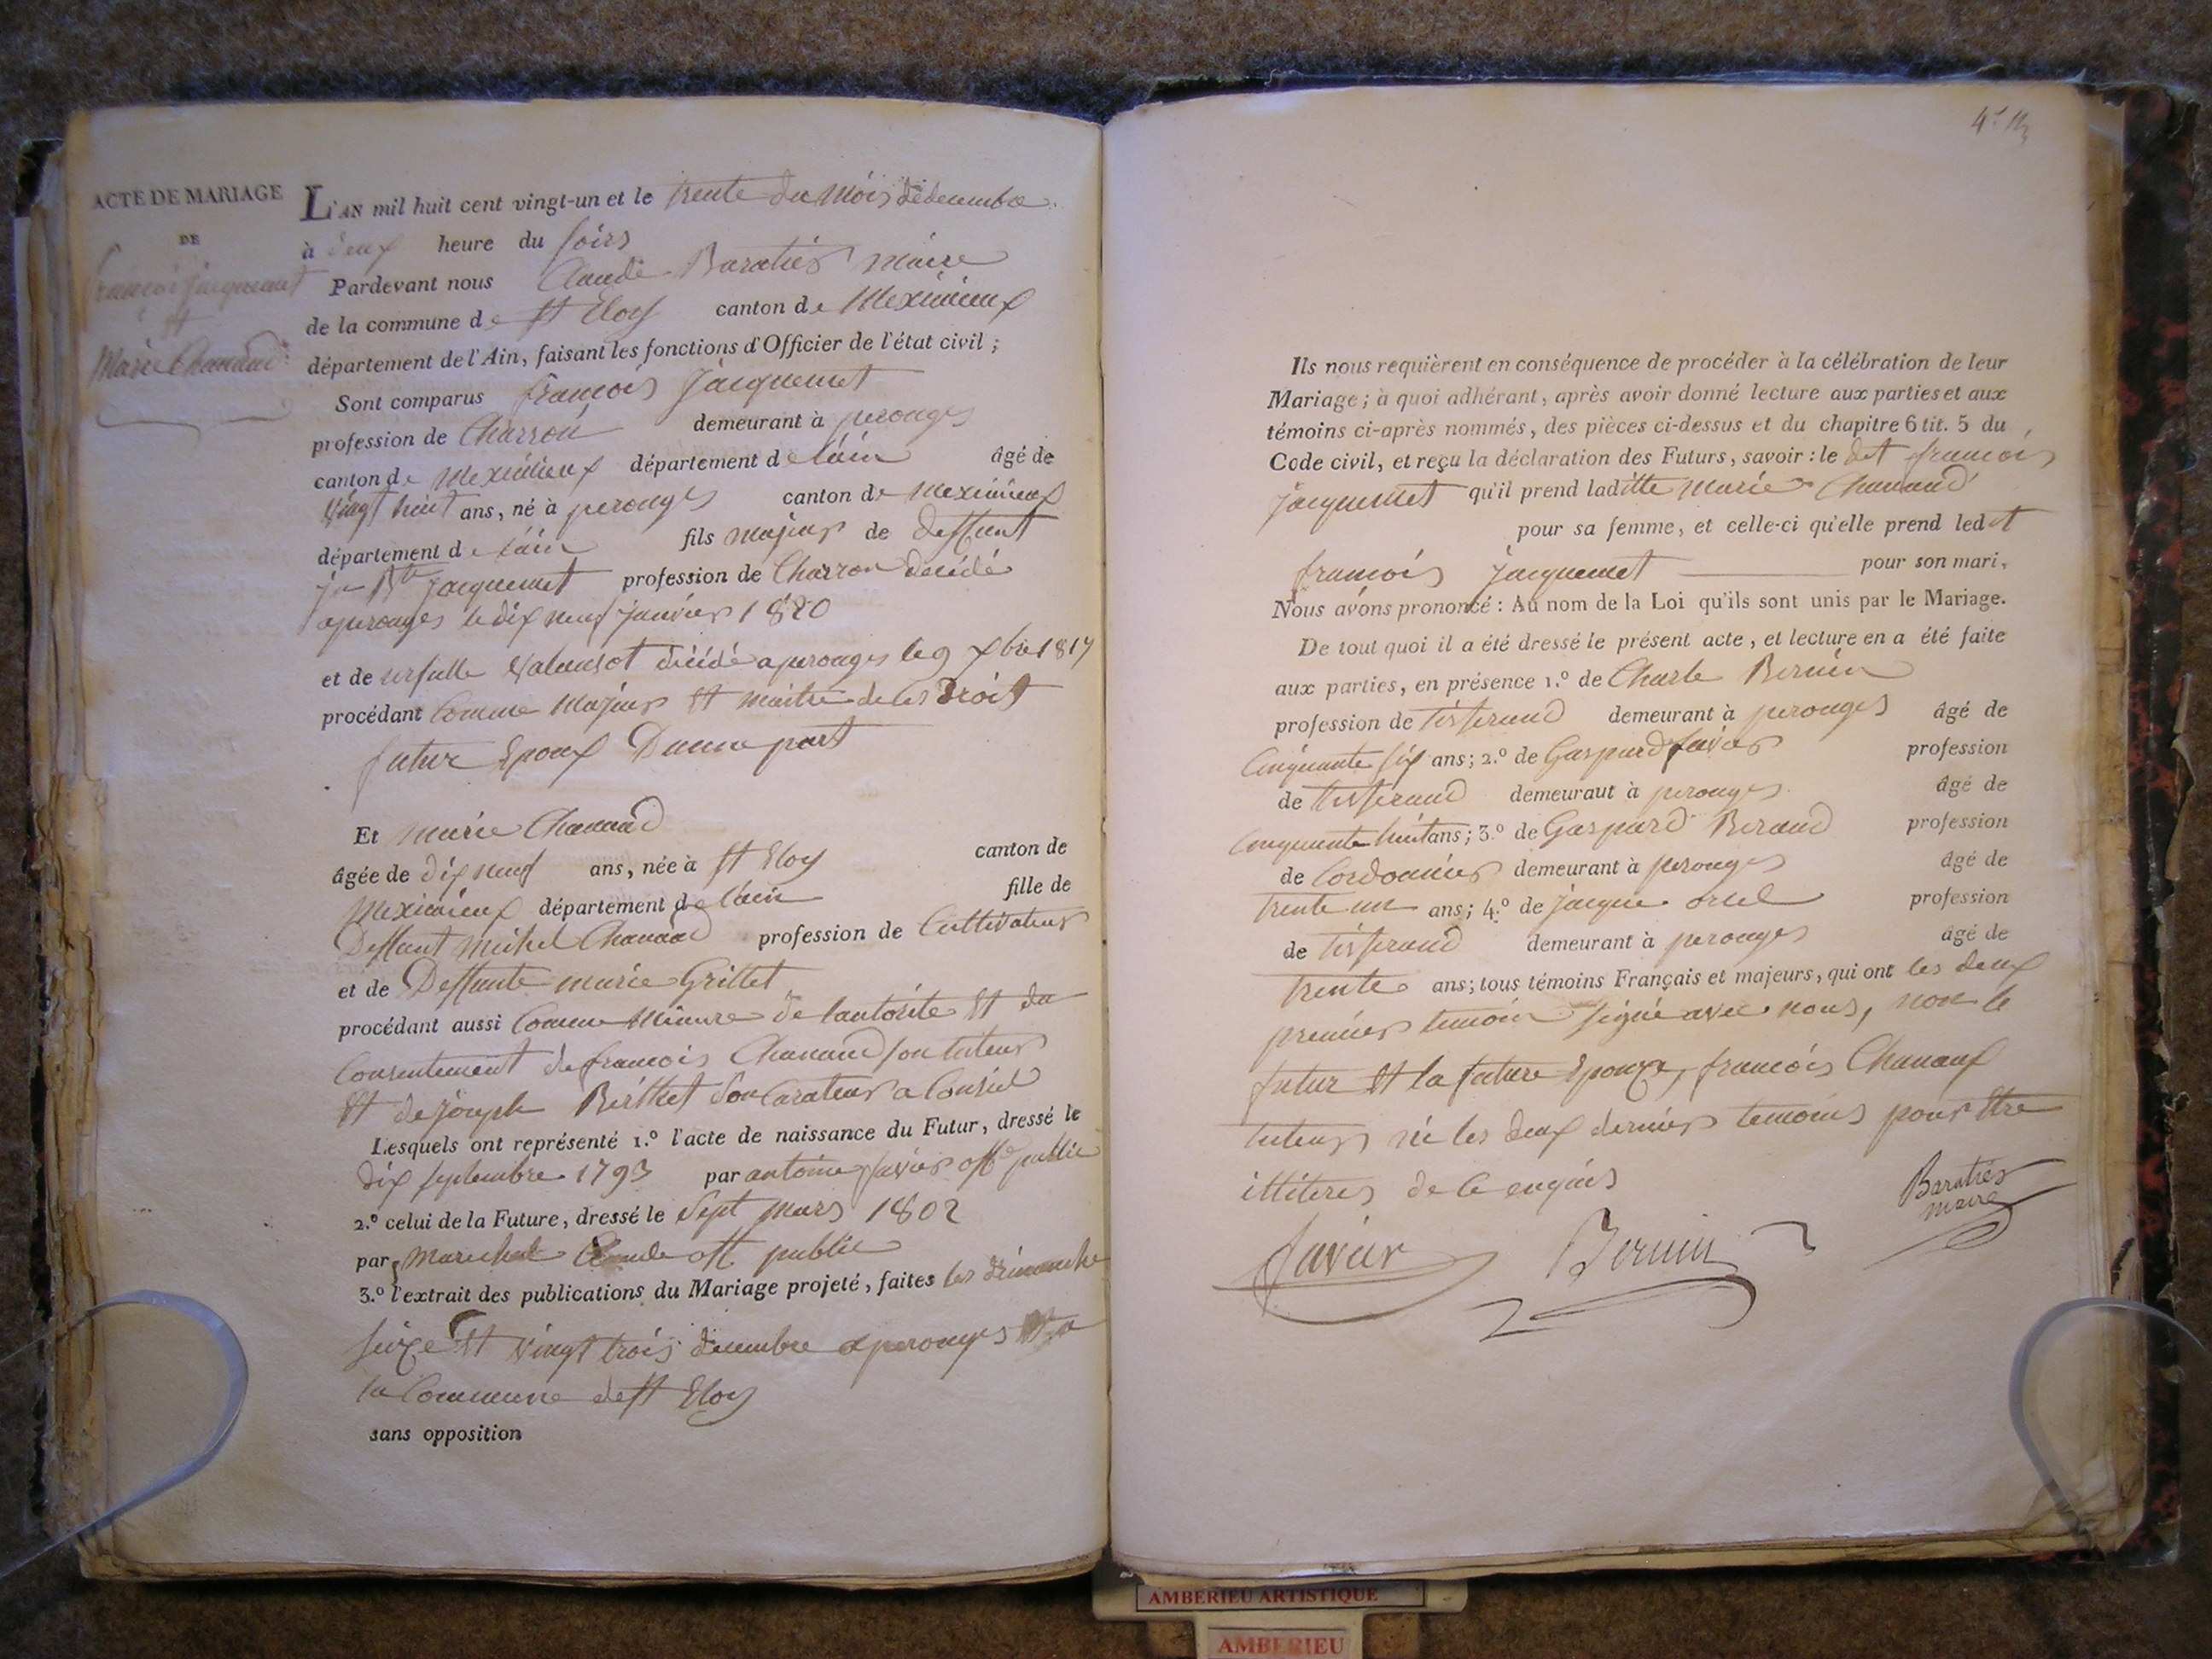 ACTE DE MARIAGE
DE
françois jacquemet
et
Marie Chanaud
L'AN mil huit cent vingt-un et le trente du mois de decembre
à deux heure du soirs
Pardevant nous Claude Baratier maire
de la commune de st Eloy canton de Meximieux
département de l'Ain, faisant les fonctions d'Officier de l'état civil;
Sont comparus françois jacquemet
profession de Charron demeurant à perouges
canton de Meximieux département de lain âgé de
vingt huit ans, né à perouges canton de meximieux
département de lain fils majeur de deffunt
jn Bte jacquemet profession de Charron décédé
a perouges le dix neuf janvier 1820
et de ursulle décédé a perouges le 9 xbre 1817
procédant comme majeur et maitre de ses droits
futur Epoux Dunne part
Et marie Chanaud
âgée de dix neuf ans, née à st Eloy canton de
Meximieux département de lain fille de
Deffunt michel Chanaud profession de Cultivateur
et de Deffunte marie Grillet
procédant aussi Comme Mineure de lautorité et du
Consentement de francois Chanaud son tuteur
et de joseph Berthet son Curateur a Conseil
Lesquels ont représenté 1.º l'acte de naissance du Futur, dressé le
dix septembre 1793 par antoine favier offr public
2.º celui de la Future, dressé le Sept mars 1802
par marechal Claude off public
3.º l'extrait des publications du Mariage projeté, faites les dimanche
seize et vingt trois decembre a perouges et a
la Commune de st Eloy
sans opposition
Ils nous requièrent en conséquence de procéder à la célébration de leur
Mariage; à quoi adhérant, après avoir donné lecture aux parties et aux
témoins ci-après nommés, des pièces ci-dessus et du chapitre 6 tit. 5 du
Code civil, et reçu la déclaration des Futurs, savoir: le dit francois
jacquemet qu'il prend laditte marie Chanaud
pour sa femme, et celle-ci qu'elle prend ledit
francois jacquemet pour son mari,
Nous avons prononcé: Au nom de la Loi qu'ils sont unis par le Mariage.
De tout quoi il a été dressé le présent acte, et lecture en a été faite
aux parties, en présence 1.º de Charle Bernin
profession de tisserand demeurant à perouges âgé de
Cinquante six ans; 2.º de Gaspard favier profession
de tisserand demeuraut à perouges âgé de
Cinquante huit ans; 3.º de Gaspard Beraud profession
de Cordonnier demeurant à perouges âgé de
trente un ans; 4.º de jacque orsel profession
de tisserand demeurant à perouges âgé de
trente ans; tous témoins Français et majeurs, qui ont les deux
premiers temoin signé avec nous, non le
futur et la future Epouze, francois Chanaux
tuteur ni les deux dernier temoins pour etre
illiteres de ce enquis
Baratier
maire
favier Bernin
AMBERIEU ARTISTIQUE
AMBERIEU